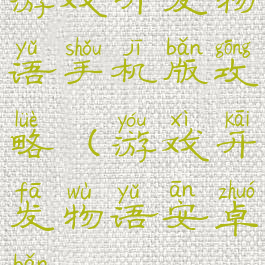 游戏开发物
yǔ shǒu jī bǎn gōng
语手机版攻
lüè yóu xì kāi
略(游戏开
fā wù yǔ ān zhuó
发物语安卓
bǎn